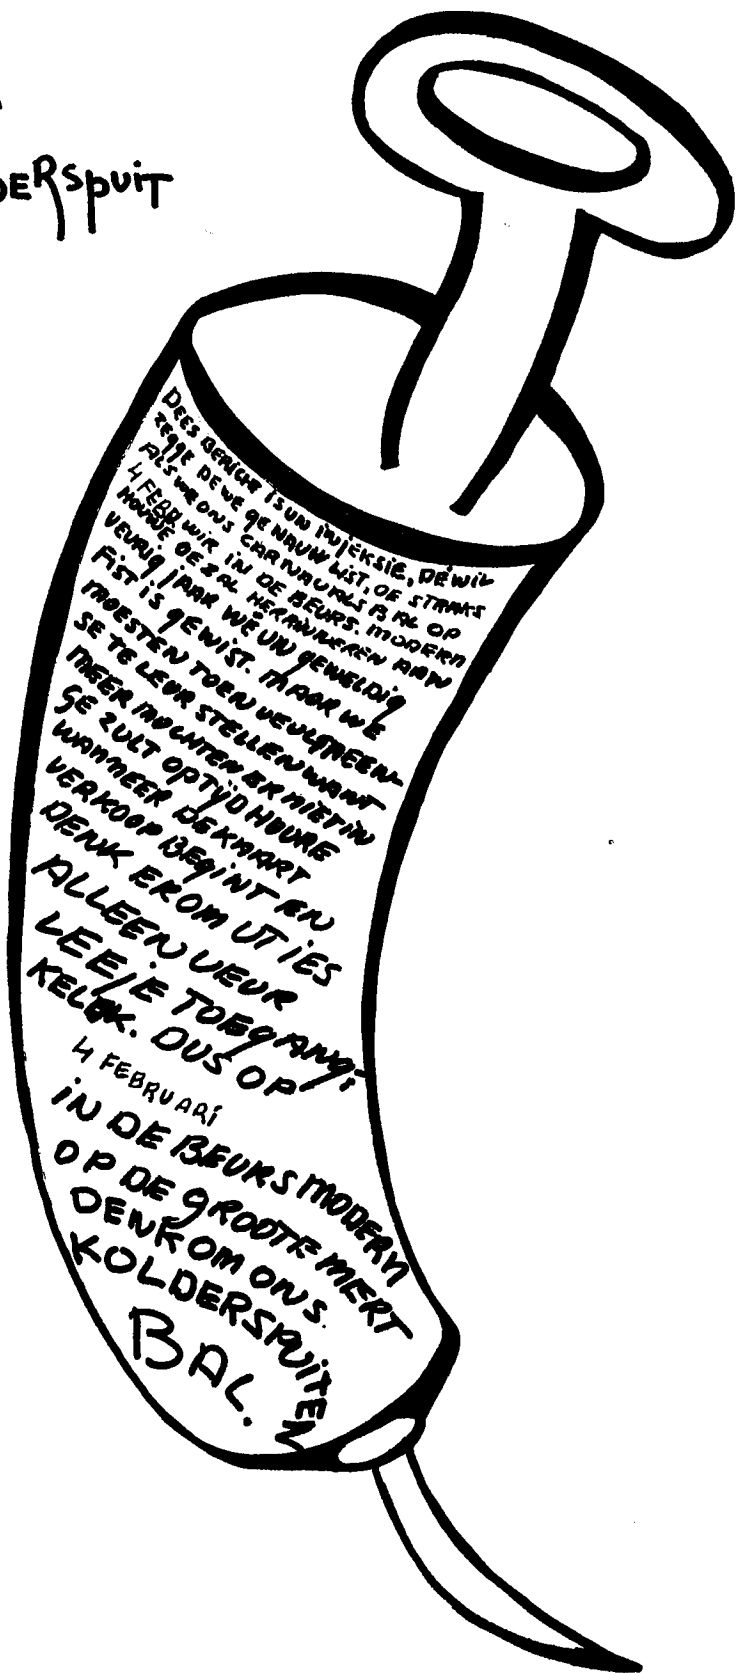 DERSPUIT
DEES BERICHT IS UN INJEKSIE, DÉWIL
ZEGGE DEWE GENAUW LIST, OE STRAKS
ALS WE ONS CARNAVALS BAL OP
4 FEBR WIR IN DE BEURS. MODERN
HOUWE OE ZAL HERINNEREN AAN
VEURIG JAAR WE UN GEWELDIG
FIST IS GEWIST. MAAR WE
MOESTEN TOEN VEUL MEEN-
SE TE LEUR STELLEN WANT
MEER MOCHTEN ER NIET IN
GE ZULT OPTYD HOURE
WANNEER DE KAART
VERKOOP BEGINT EN
DENK EROM UT IES
ALLEEN VEUR
LEEJE TOEGANG;
KELEK. DUS OP
4 FEBRUARI
IN DE BEURS MODERN
OP DE GROOTE MERT
DENK OM ONS.
KOLDERSPUITEN
BAL.